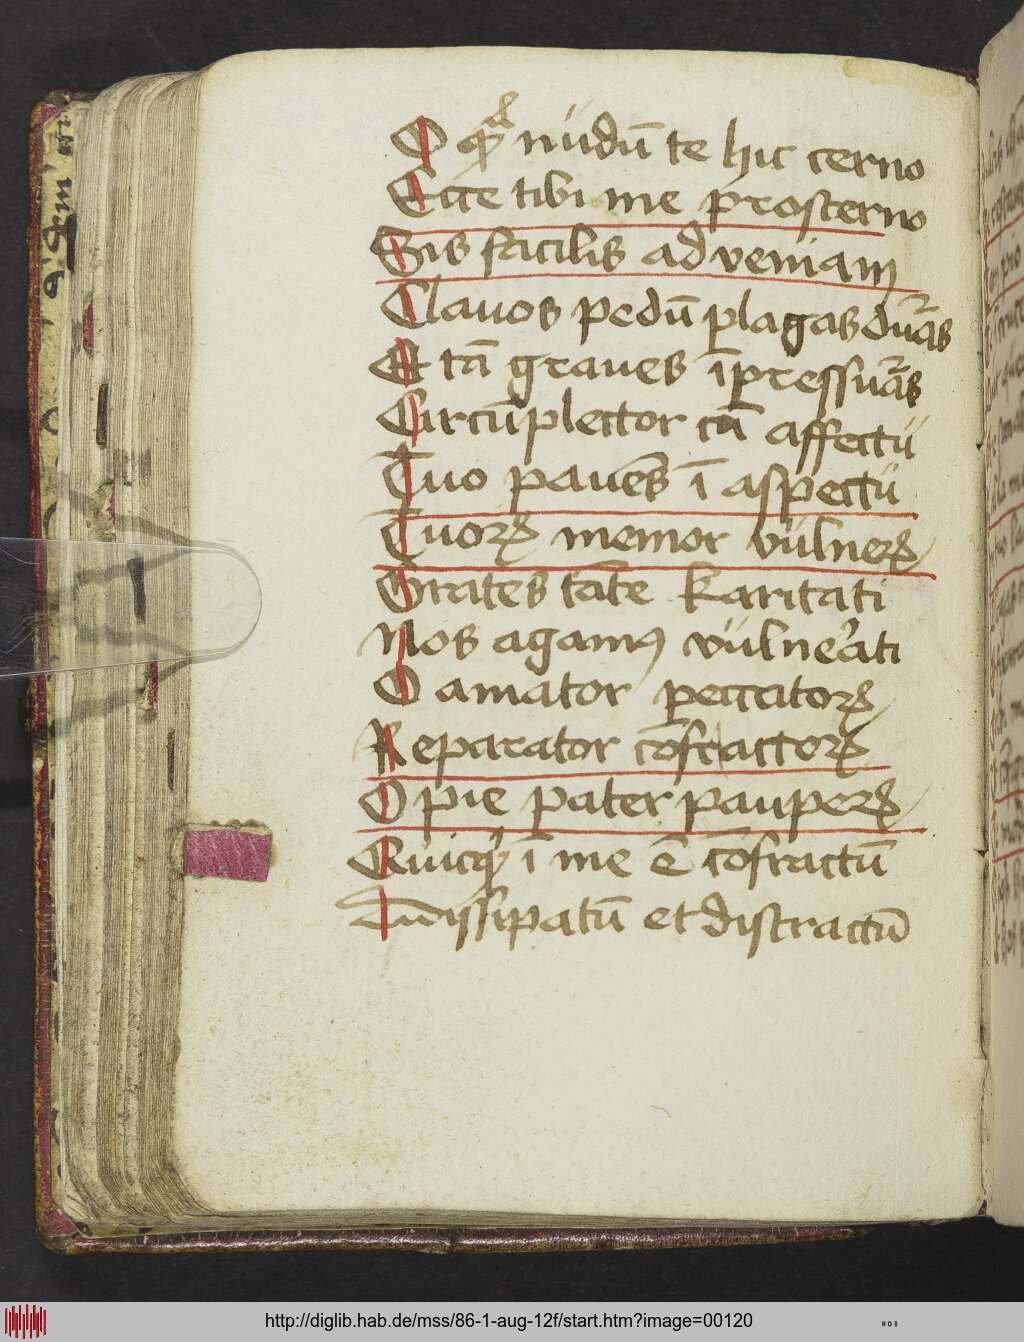 O qͣ nudū te hic cerno
Ecce tibi me prosterno
Sis facilis ad veniam
Clavos pedū plagas duras
Et tā graves īpressuras
Circūplector cū affectu
Tuo pavēs ī aspectu
Tuorꝝ memor vulnerꝝ
Grates tāte karitati
Nos agamꝰ vulnerati
O amator peccatorꝝ
Reparator cōfractorꝝ
O pie pater pauperꝝ
Quicqͥd ī me ē cōfractū
dissipatū et distractū
http://diglib.hab.de/mss/86-1-aug-12f/start.htm?image=00120